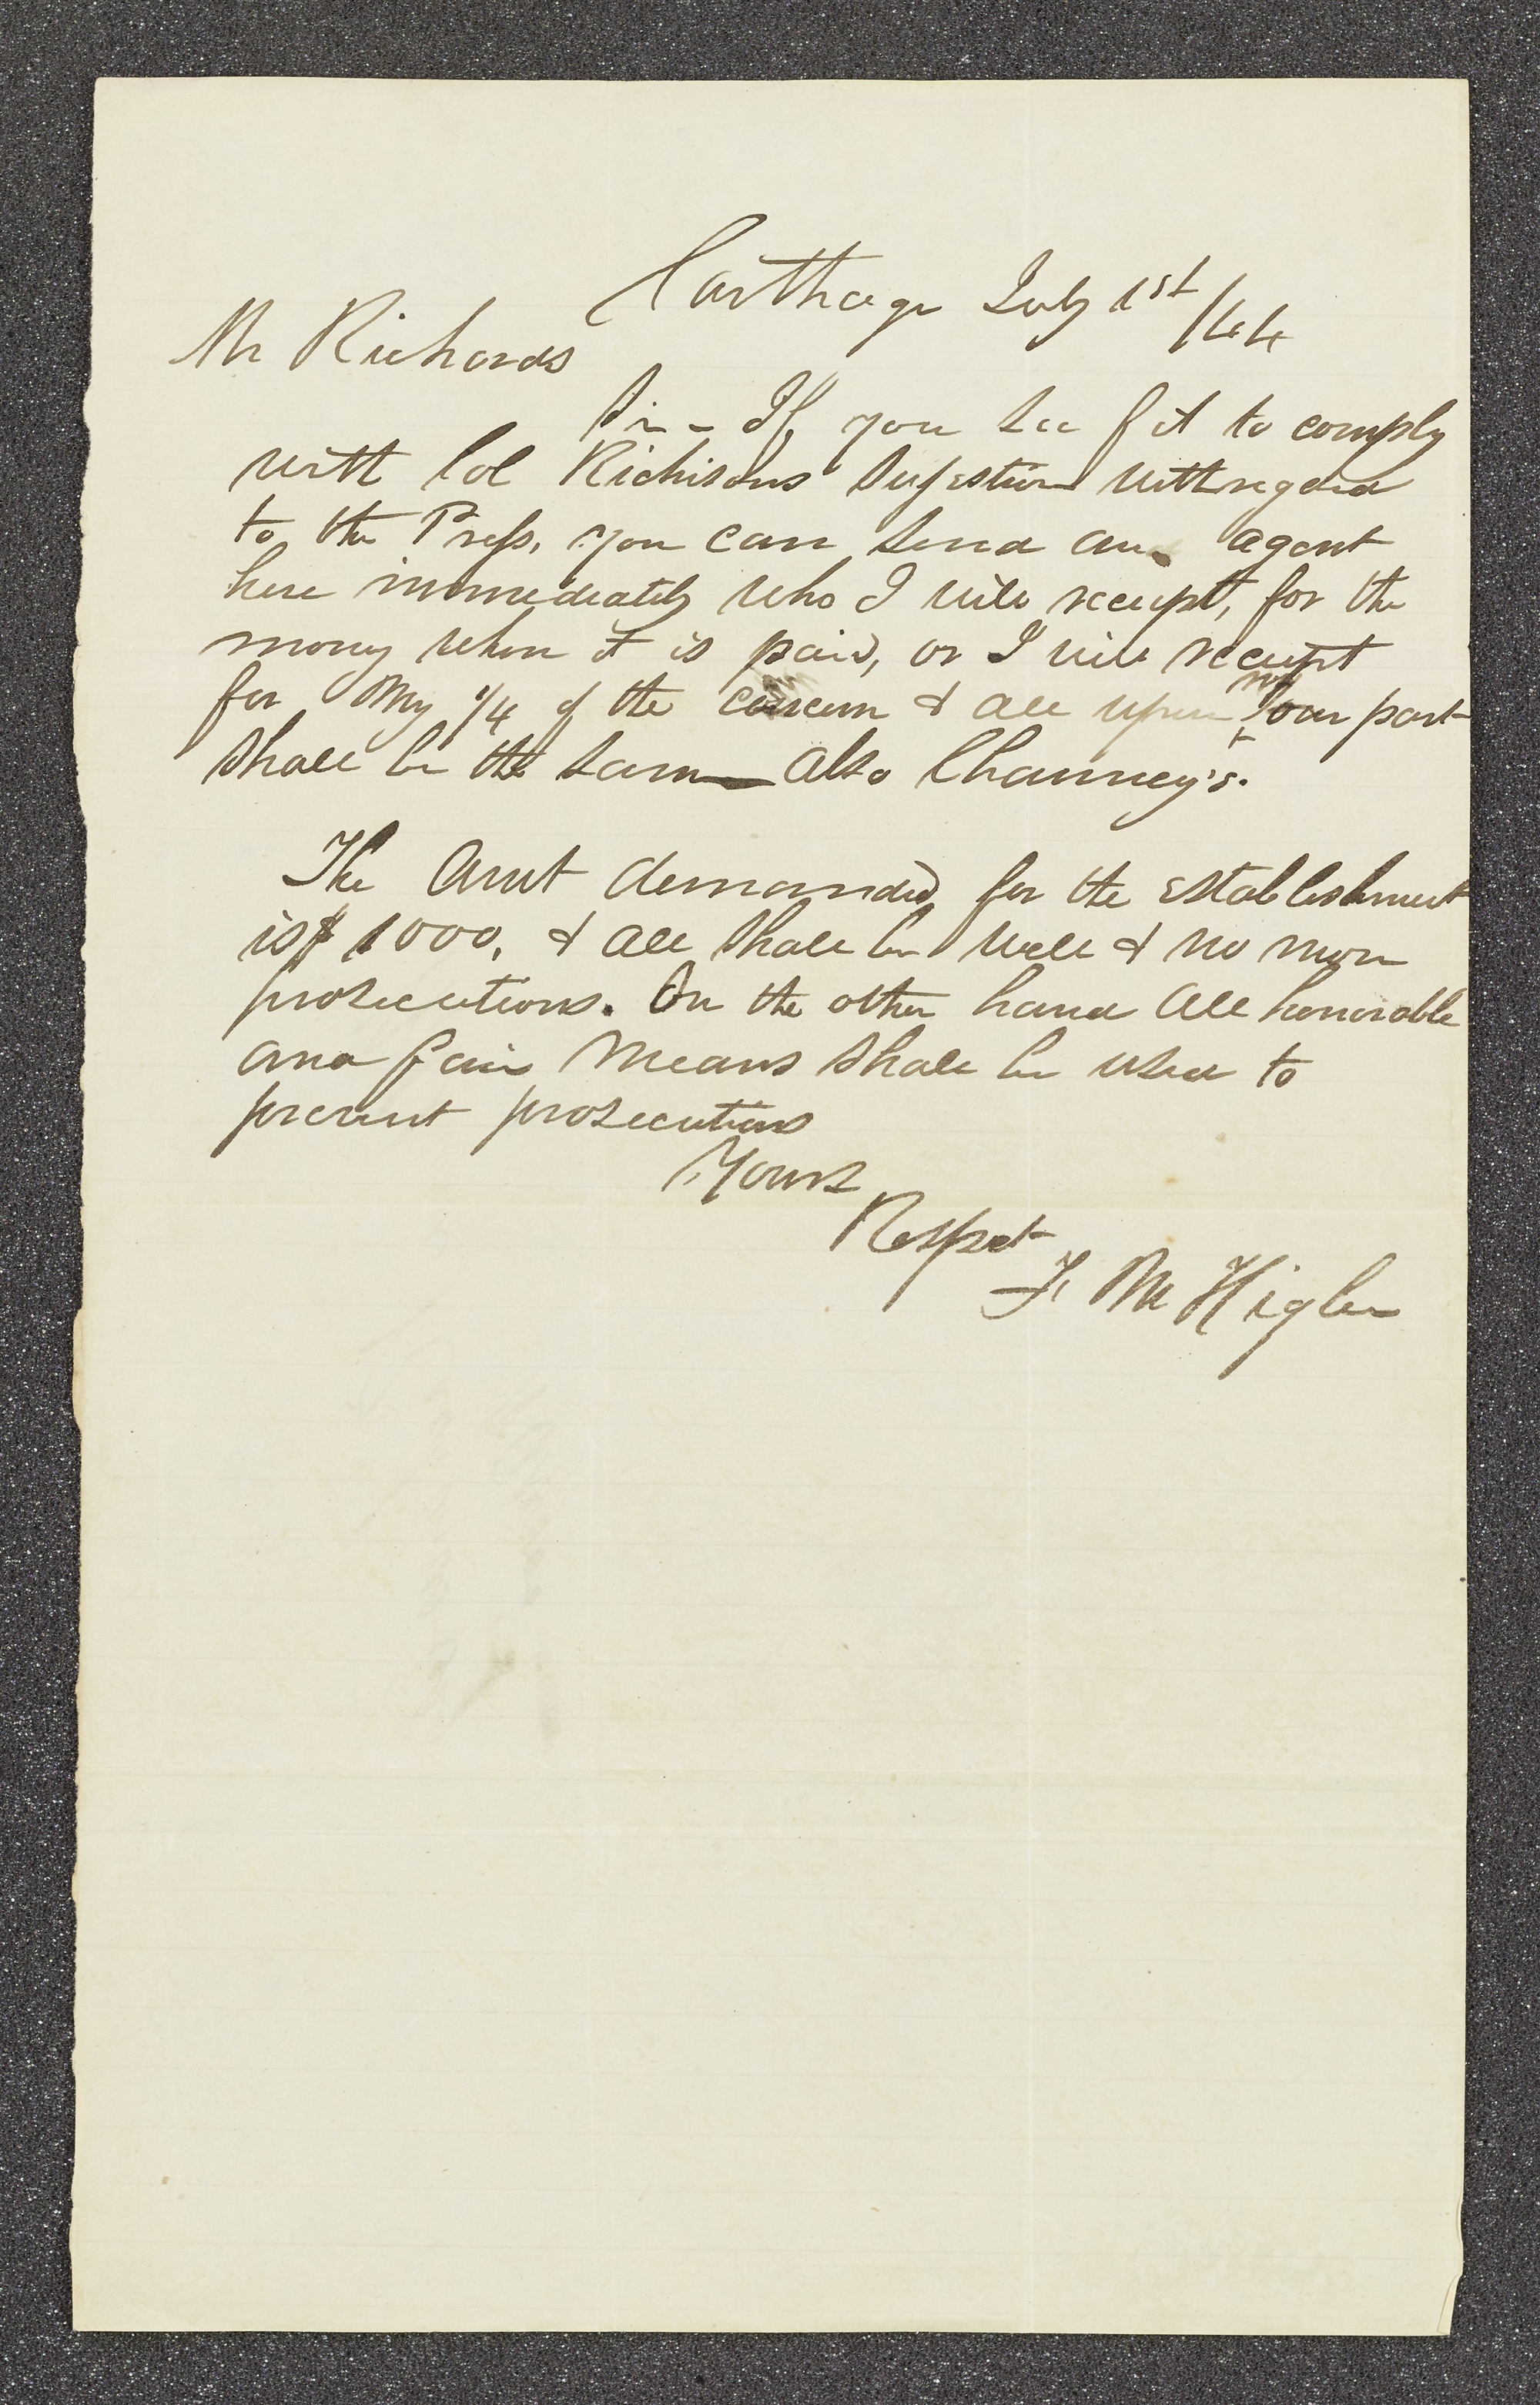 Carthage July 1st /44
Mr Richards
Sir - If you see fit to comply
with Col Richisons Sugestion with regard
to the Press, you can send an agent
here immediately who I will receipt, for the
money when it is paid, or I will receipt
for My 1/4 of the concern & all upon my our part
shall be the same Also Chauncy's.
The Amt demanded for the establishment
is $1000, & all shall be well & no more
prosecutions. On the other hand all honorable
and fair Means shall be used to
prevent prosecutions
Yours
Respect
F. M Higbee